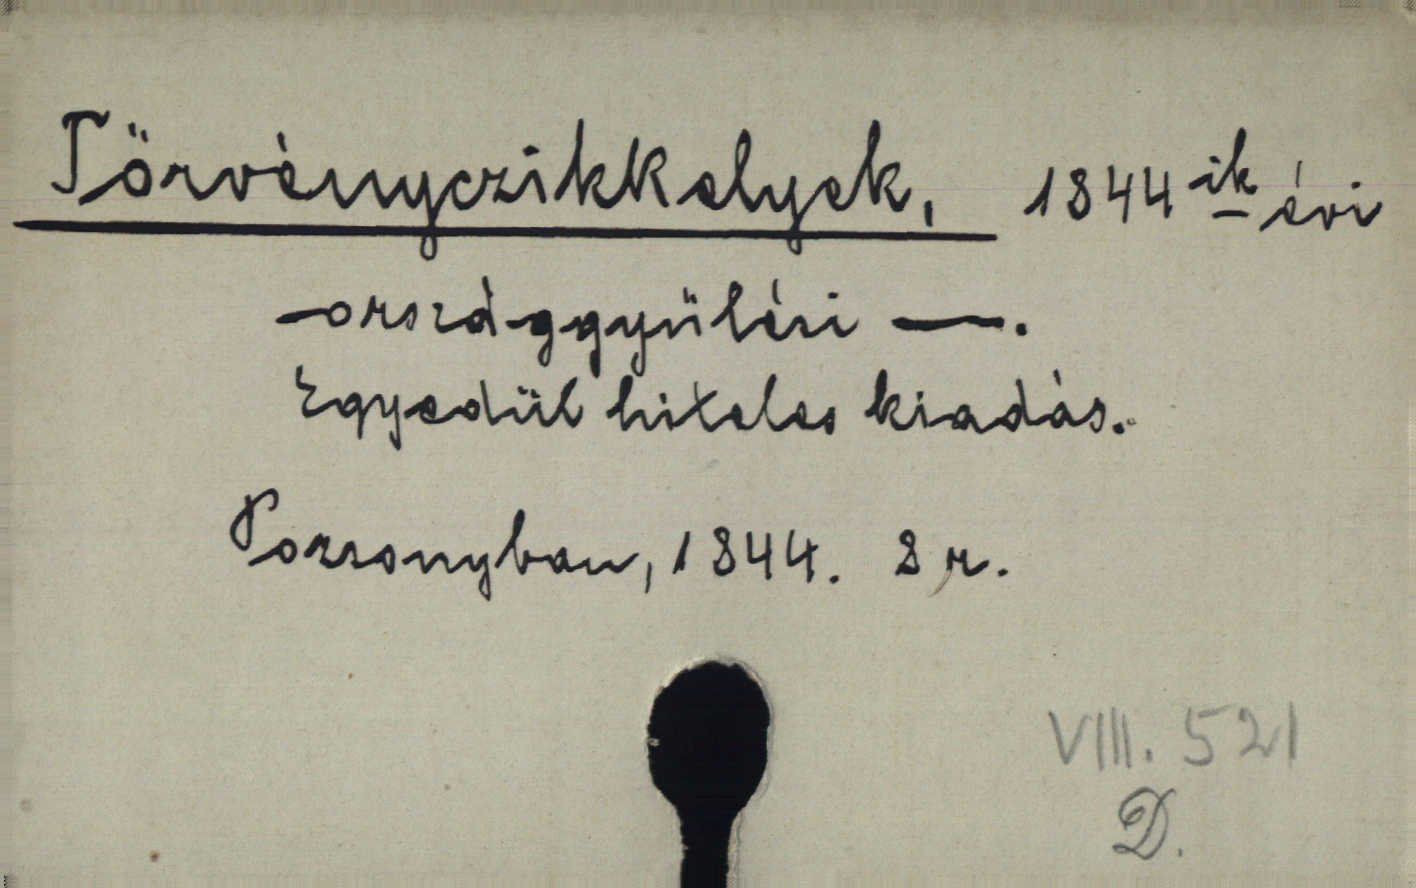 Törvényczikkelyek, 1844ik évi
országgyűlési —.
Egyedül hiteles kiadás.
Pozsonyban, 1844. 8 r.
VIII. 521
D.